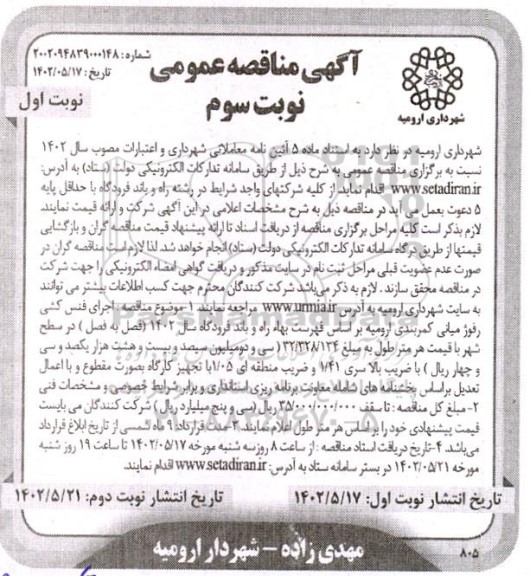 شماره: ۲۰۰۲۰۹۴۸۳۹۰۰۰۱۴۸
تاریخ: ۱۴۰۲/۰۵/۱۷
نوبت اول
آگهی مناقصه عمومی
نوبت سوم
شهرداری ارومیه
شهرداری ارومیه در نظر دارد به استناد ماده ۵ آئین نامه معاملاتی شهرداری و اعتبارات مصوب سال ۱۴۰۲
نسبت به برگزاری مناقصه عمومی به شرح ذیل از طریق سامانه تدارکات الکترونیکی دولت (ستاد) به آدرس:
www.setadiran.ir اقدام نماید. از کلیه شرکتهای واجد شرایط در رشته راه و باند فرودگاه با حداقل پایه
۵ دعوت بعمل می آید در مناقصه ذیل به شرح مشخصات اعلامی در این آگهی شرکت و ارائه قیمت نمایند.
لازم بذکر است کلیه مراحل برگزاری مناقصه از دریافت اسناد تا ارائه پیشنهاد قیمت مناقصه گران و بازگشایی
قیمتها از طریق درگاه سامانه تدارکات الکترونیکی دولت (ستاد) انجام خواهد شد. لذا لازم است مناقصه گران در
صورت عدم عضویت قبلی مراحل ثبت نام در سایت مذکور و دریافت گواهی امضاء الکترونیکی را جهت شرکت
در مناقصه محقق سازند. لازم به ذکر می‌باشد شرکت کنندگان محترم جهت کسب اطلاعات بیشتر می توانند
به سایت شهرداری ارومیه به آدرس www.urmia.ir مراجعه نمایند. ۱-موضوع مناقصه: اجرای فنس کشی
رفوژ میانی کمربندی ارومیه بر اساس فهرست بهاء راه و باند فرودگاه سال ۱۴۰۲ (فصل به فصل) در سطح
شهر با قیمت هر متر طول به مبلغ ۳۲/۳۲۸/۱۲۴ (سی و دومیلیون سیصد و بیست و هشت هزار یکصد و سی
و چهار ریال) با ضریب بالا سری ۱/۴۱ و ضریب منطقه ای ۱/۰۵ با تجهیز کارگاه بصورت مقطوع و با اعمال
تعدیل براساس بخشنامه های شامله معاونت برنامه ریزی استانداری و برابر شرایط خصوصی و مشخصات فنی
۲-مبلغ کل مناقصه: تا سقف ۳۵/۰۰۰/۰۰۰/۰۰۰ ریال (سی و پنج میلیارد ریال) شرکت کنندگان می بایست
قیمت پیشنهادی خود را براساس هر متر طول اعلام نمایند. ۳-مدت قرارداد ۹ ماه شمسی از تاریخ ابلاغ قرارداد
می‌باشد. ۴-تاریخ دریافت اسناد مناقصه: از ساعت ۸ روز سه شنبه مورخه ۱۴۰۲/۰۵/۱۷ تا ساعت ۱۹ روز شنبه
مورخه ۱۴۰۲/۰۵/۲۱ در بستر سامانه ستاد به آدرس: www.setadiran.ir اقدام نمایند.
تاریخ انتشار نوبت اول: ۱۴۰۲/۵/۱۷ تاریخ انتشار نوبت دوم: ۱۴۰۲/۵/۲۱
مهدی زاده – شهردار ارومیه
۸۰۵